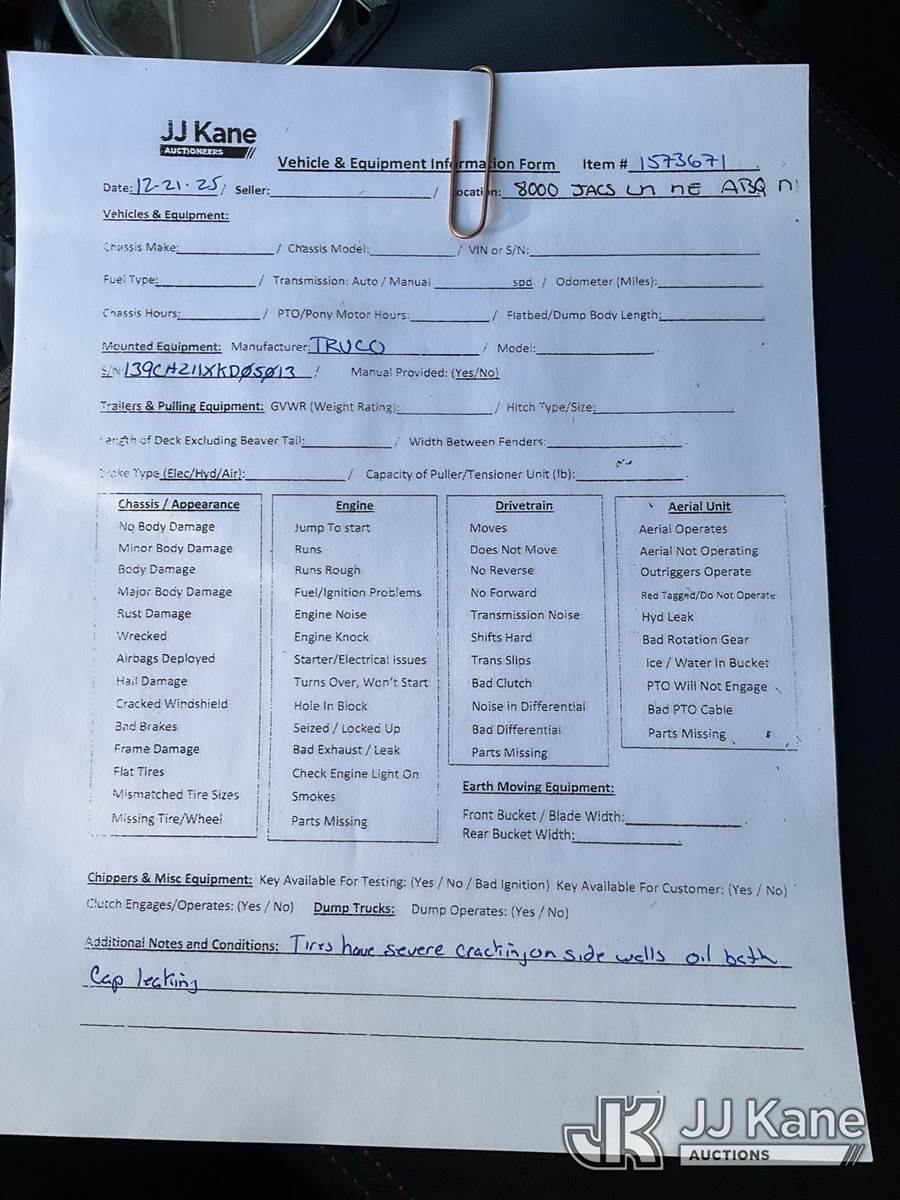 JJ Kane
AUCTIONEERS
Vehicle & Equipment Information Form Item # 1573671
Date: 12-21-25 / Seller: / Location: 8000 JACS Ln NE ABQ N
Vehicles & Equipment:
Chassis Make: / Chassis Model: / VIN or S/N:
Fuel Type: / Transmission: Auto / Manual spd / Odometer (Miles):
Chassis Hours: / PTO/Pony Motor Hours: / Flatbed/Dump Body Length:
Mounted Equipment: Manufacturer: TRUCO / Model:
S/N: / Manual Provided: (Yes/No)
Trailers & Pulling Equipment: GVWR (Weight Rating): / Hitch Type/Size:
Length of Deck Excluding Beaver Tail: / Width Between Fenders:
Brake Type (Elec/Hyd/Air): / Capacity of Puller/Tensioner Unit (lb):
Chassis / Appearance
No Body Damage
Minor Body Damage
Body Damage
Major Body Damage
Rust Damage
Wrecked
Airbags Deployed
Hail Damage
Cracked Windshield
Bad Brakes
Frame Damage
Flat Tires
Mismatched Tire Sizes
Missing Tire/Wheel
Engine
Jump To start
Runs
Runs Rough
Fuel/Ignition Problems
Engine Noise
Engine Knock
Starter/Electrical issues
Turns Over, Won't Start
Hole In Block
Seized / Locked Up
Bad Exhaust / Leak
Check Engine Light On
Smokes
Parts Missing
Drivetrain
Moves
Does Not Move
No Reverse
No Forward
Transmission Noise
Shifts Hard
Trans Slips
Bad Clutch
Noise in Differential
Bad Differential
Parts Missing
Aerial Unit
Aerial Operates
Aerial Not Operating
Outriggers Operate
Red Tagged/Do Not Operate
Hyd Leak
Bad Rotation Gear
Ice / Water In Bucket
PTO Will Not Engage
Bad PTO Cable
Parts Missing
Earth Moving Equipment:
Front Bucket / Blade Width:
Rear Bucket Width:
Chippers & Misc Equipment: Key Available For Testing: (Yes / No / Bad Ignition) Key Available For Customer: (Yes / No)
Clutch Engages/Operates: (Yes / No) Dump Trucks: Dump Operates: (Yes / No)
Additional Notes and Conditions: Tires have severe cracking on side walls oil bath
Cap leaking
JK JJ Kane
AUCTIONS